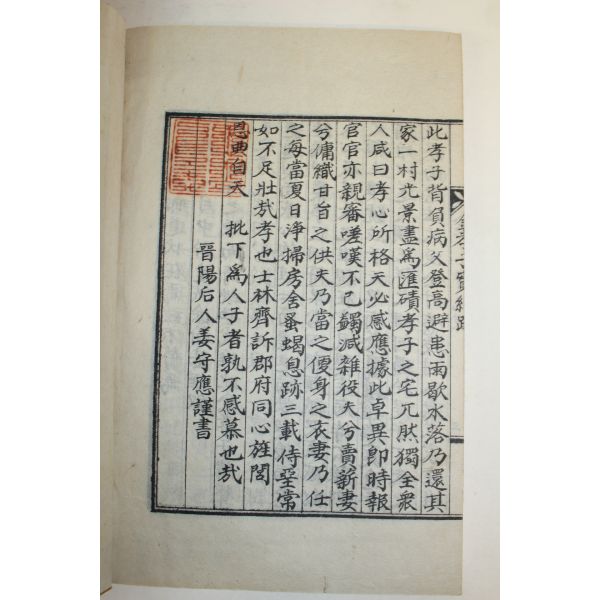 此孝子背負病父登高避患雨歇水落乃還其
家一村光景盡爲匯磧孝子之宅兀然獨全衆
人咸曰孝心所格天必感應據此卓異卽時報
官官亦親審嗟嘆不已蠲减雜役夫兮賣薪妻
兮傭織甘旨之供夫乃當之便身之衣妻乃任
之每當夏日淨掃房舍蚤蝎息跡三載侍堊常
如不足壯哉孝也士林齊訴郡府同心旌閭
恩典自天 批下爲人子者孰不感慕也哉
晉陽后人姜守應謹書